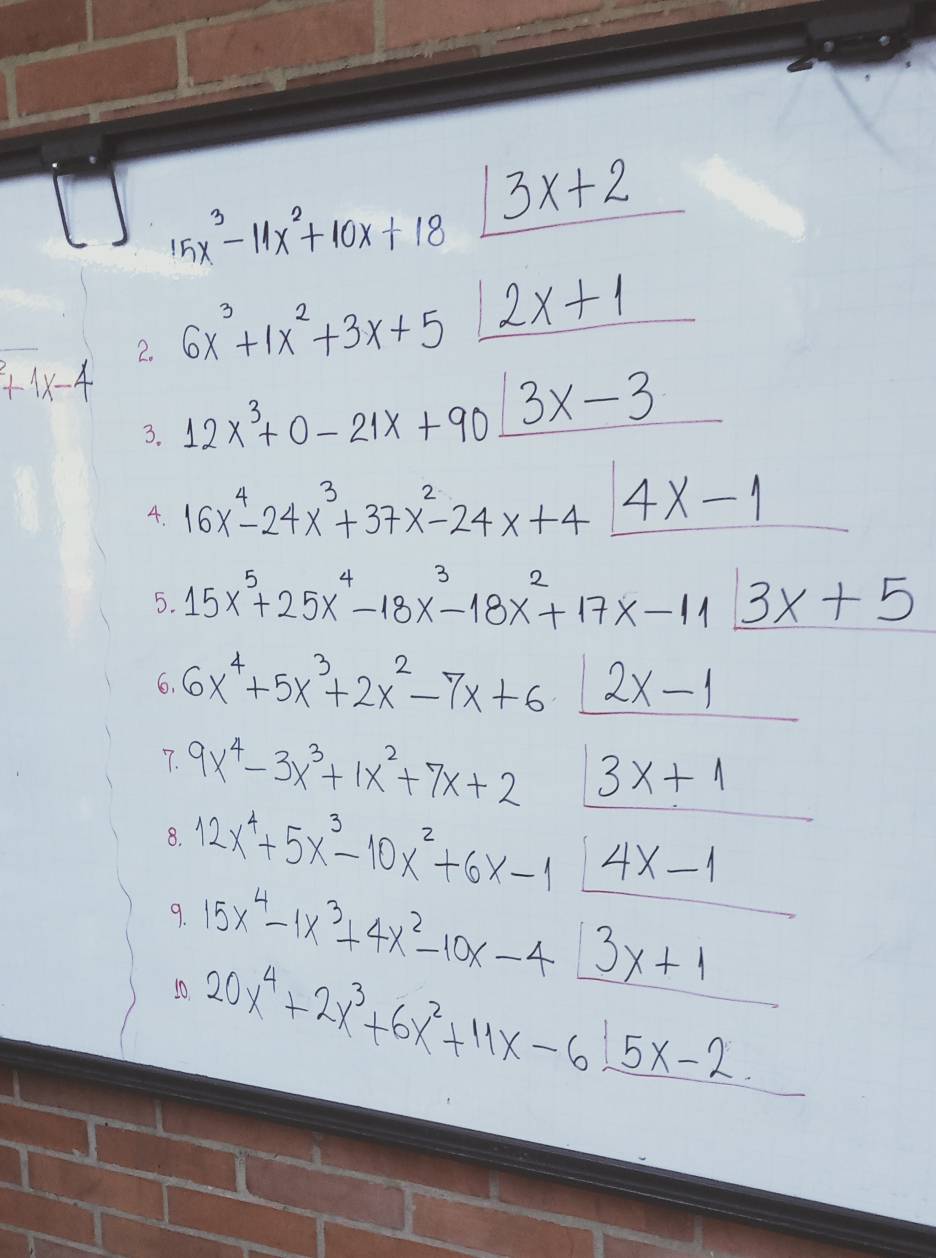 15x³-11x²+10x+18 |3x+2
2. 6x³+1x²+3x+5 |2x+1
²+1x-4
3. 12x³+0-21x+90 |3x-3
4. 16x⁴-24x³+37x²-24x+4 |4x-1
5. 15x⁵+25x⁴-18x³-18x²+17x-11 |3x+5
6. 6x⁴+5x³+2x²-7x+6 |2x-1
7. 9x⁴-3x³+1x²+7x+2 |3x+1
8. 12x⁴+5x³-10x²+6x-1 |4x-1
9. 15x⁴-1x³+4x²-10x-4 |3x+1
10. 20x⁴+2x³+6x²+11x-6 |5x-2.